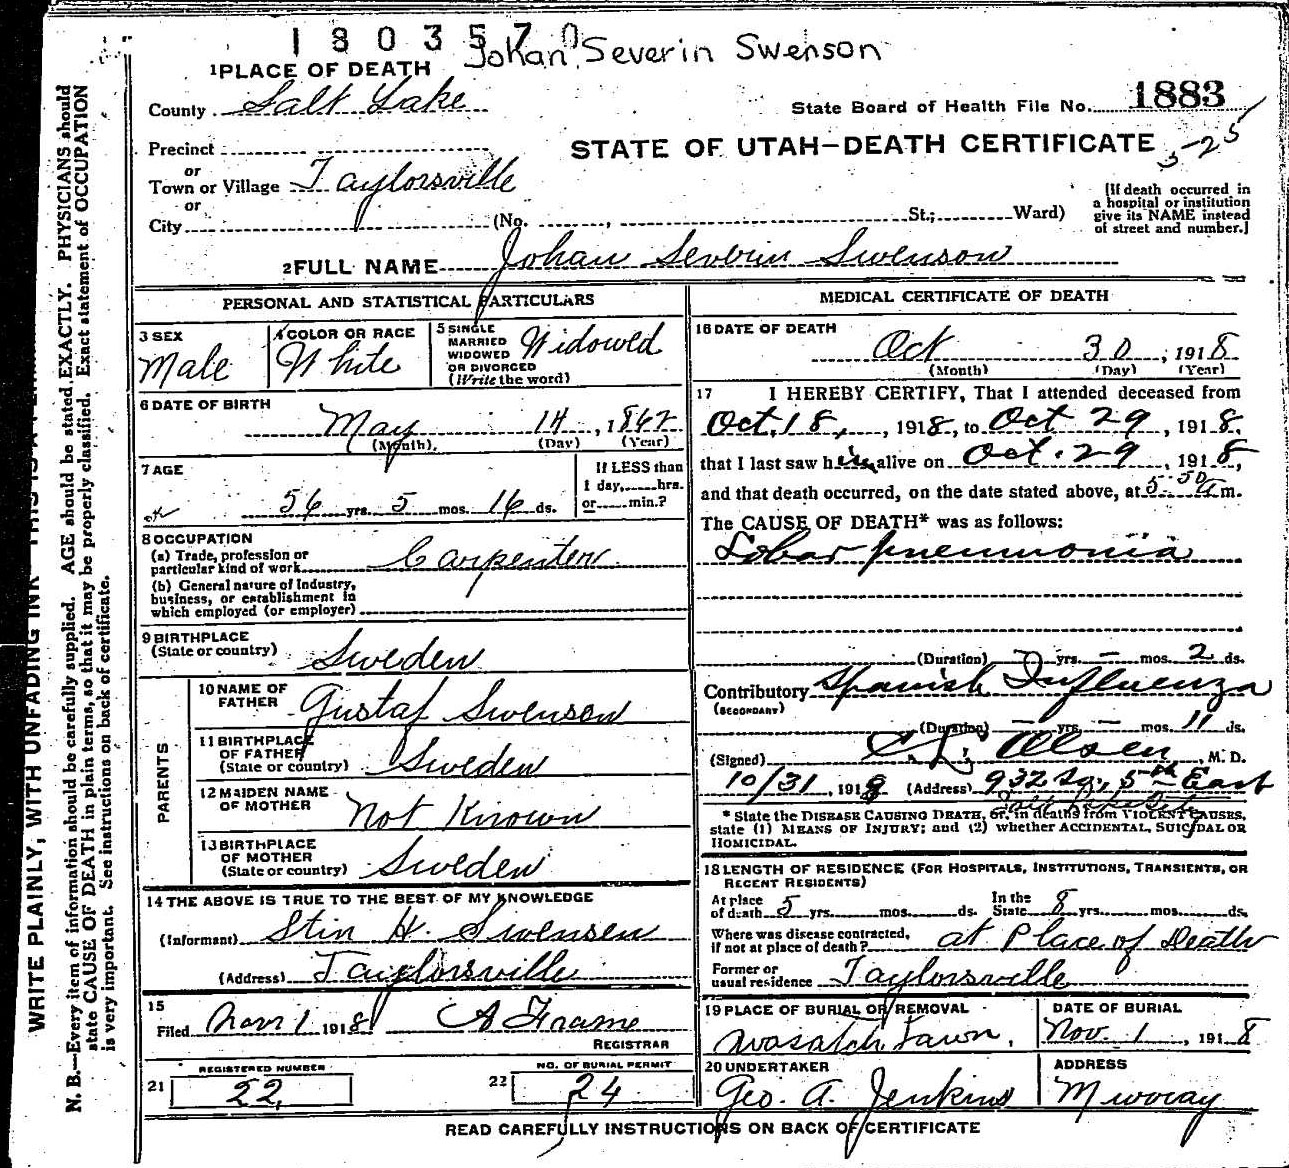 180357
Johan Severin Swenson
1 PLACE OF DEATH
County Salt Lake
State Board of Health File No. 1883
Precinct
STATE OF UTAH—DEATH CERTIFICATE
or
Town or Village Taylorsville
or
City (No. , St.; Ward)
[If death occurred in
a hospital or institution
give its NAME instead
of street and number.]
2 FULL NAME Johan Severin Swenson
PERSONAL AND STATISTICAL PARTICULARS
3 SEX
Male
4 COLOR OR RACE
White
5 SINGLE
MARRIED
WIDOWED
OR DIVORCED
(Write the word)
Widowed
6 DATE OF BIRTH
May 14, 1862
(Month) (Day) (Year)
7 AGE
56 yrs. 5 mos. 16 ds.
If LESS than
1 day, hrs.
or min.?
8 OCCUPATION
(a) Trade, profession or
particular kind of work Carpenter
(b) General nature of Industry,
business, or establishment in
which employed (or employer)
9 BIRTHPLACE
(State or country) Sweden
PARENTS
10 NAME OF
FATHER Gustaf Swenson
11 BIRTHPLACE
OF FATHER
(State or country) Sweden
12 MAIDEN NAME
OF MOTHER Not Known
13 BIRTHPLACE
OF MOTHER
(State or country) Sweden
14 THE ABOVE IS TRUE TO THE BEST OF MY KNOWLEDGE
(Informant) Stin H. Swensen
(Address) Taylorsville
15
Filed Nov 1 1918 A Frame
REGISTRAR
21 REGISTERED NUMBER
22
22 NO. OF BURIAL PERMIT
24
MEDICAL CERTIFICATE OF DEATH
16 DATE OF DEATH
Oct 30, 1918
(Month) (Day) (Year)
17 I HEREBY CERTIFY, That I attended deceased from
Oct. 18, , 1918, to Oct 29, 1918,
that I last saw him alive on Oct. 29, 1918,
and that death occurred, on the date stated above, at 5:50 a m.
The CAUSE OF DEATH* was as follows:
Lobar pneumonia
(Duration) — yrs. — mos. 2 ds.
Contributory Spanish Influenza
(SECONDARY)
(Duration) — yrs. — mos. 11 ds.
(Signed) Olsen, M. D.
10/31, 1918 (Address) 932 So, 5th East
Salt Lake City
* State the DISEASE CAUSING DEATH, or, in deaths from VIOLENT CAUSES,
state (1) MEANS OF INJURY; and (2) whether ACCIDENTAL, SUICIDAL OR
HOMICIDAL.
18 LENGTH OF RESIDENCE (FOR HOSPITALS, INSTITUTIONS, TRANSIENTS, OR
RECENT RESIDENTS)
At place
of death 5 yrs. mos. ds.
In the
State 8 yrs. mos. ds.
Where was disease contracted,
if not at place of death? at Place of Death
Former or
usual residence Taylorsville
19 PLACE OF BURIAL OR REMOVAL
Wasatch Lawn.
DATE OF BURIAL
Nov. 1, 1918
20 UNDERTAKER
Geo. A. Jenkins
ADDRESS
Murray
READ CAREFULLY INSTRUCTIONS ON BACK OF CERTIFICATE
WRITE PLAINLY, WITH UNFADING INK THIS IS A
N. B.—Every item of information should be carefully supplied. AGE should be stated EXACTLY. PHYSICIANS should
state CAUSE OF DEATH in plain terms, so that it may be properly classified. Exact statement of OCCUPATION
is very important. See instructions on back of certificate.